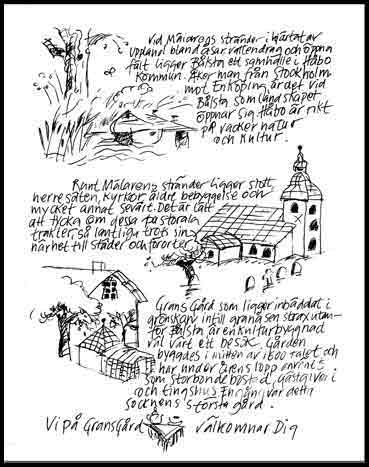 Vid Mälarens stränder i hjärtat av
Uppland bland åsar vattendrag och öppna
fält ligger Bålsta ett samhälle i Håbo
kommun. Åker man från Stockholm
mot Enköping är det vid
Bålsta som landskapet
öppnar sig. Håbo är rikt
på vacker natur
och kultur.
Runt Mälarens stränder ligger slott,
herresäten, kyrkor, äldre bebyggelse och
mycket annat sevärt. Det är lätt
att tycka om dessa pastorala
trakter, så lantliga trots sin
närhet till städer och förorter.
Grans Gård som ligger inbäddat i
grönskan intill granåsen strax utan-
för Bålsta är en kulturbyggnad
väl värt ett besök. Gården
byggdes i mitten av 1600 talet och
har under årens lopp använts
som storbondebostad, gästgiveri
och tingshus. En gång var detta
socknens största gård.
Vi på Grans Gård välkomnar Dig